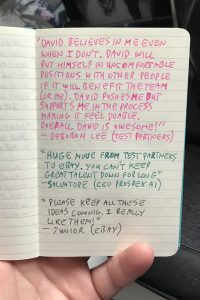 "DAVID BELIEVES IN ME EVEN
WHEN I DON'T. DAVID WILL
PUT HIMSELF IN UNCOMFORTABLE
POSITIONS WITH OTHER PEOPLE
IF IT WILL BENEFIT THE TEAM
(OR ME). DAVID PUSHES ME BUT
SUPPORTS ME IN THE PROCESS
MAKING IT FEEL DOABLE.
OVERALL DAVID IS AWESOME!"
- DEBORAH LEE (TEST PARTNERS)
"HUGE MOVE FROM TEST PARTNERS
TO EBAY, YOU CAN'T KEEP
GREAT TALENT DOWN FOR LONG"
- SALVATORE (CEO PROSPEX AI)
"PLEASE KEEP ALL THESE
IDEAS COMING, I REALLY
LIKE THEM!"
- JUNIOR (EBAY)